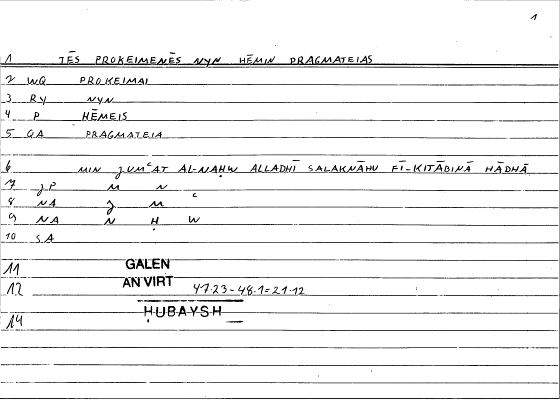 1
1 TĒS PROKEIMENĒS NYN HĒMIN PRAGMATEIAS
2 WQ PROKEIMAI
3 RY NYN
4 P HĒMEIS
5 QA PRAGMATEIA
6 MIN ǦUMʿAT AL-NAḤW ALLADHĪ SALAKNĀHU FĪ-KITĀBINĀ HĀDHĀ
7 ǦP M N
8 NA Ǧ M ʿ
9 NA N Ḥ W
10 SA
11 GALEN
12 AN VIRT 47.23-48.1=21.12
ḤUBAYSH
14